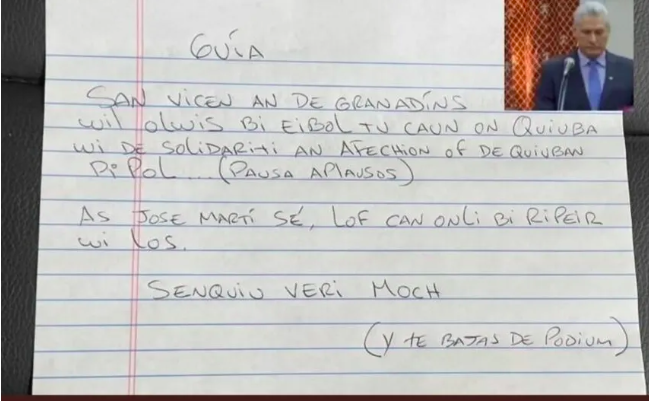 GUÍA
SAN VICEN AN DE GRANADÍNS
WIL OLWIS BI EIBOL TU CAUN ON QUIUBA
WI DE SOLIDARITI AN AFECHION OF DE QUIUBAN
PIPOL... (PAUSA APLAUSOS)
AS JOSE MARTÍ SÉ, LOF CAN ONLI BI RIPEIR
WI LOS.
SENQUIU VERI MOCH
(Y TE BAJAS DE PODIUM)